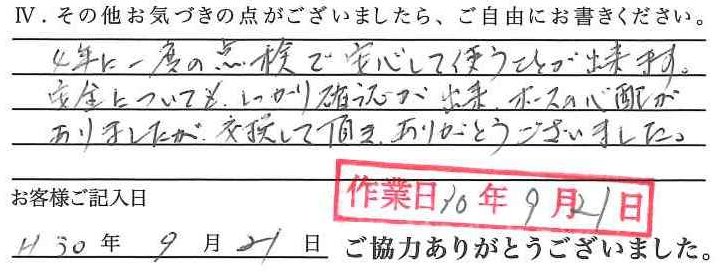 Ⅳ．その他お気づきの点がございましたら、ご自由にお書きください。
4年に一度の点検で安心して使うことが出来ます。
安全についても、しっかり確認が出来、ホースの心配が
ありましたが、交換して頂き、ありがとうございました。
お客様ご記入日
作業日30年9月21日
H30年9月21日 ご協力ありがとうございました。